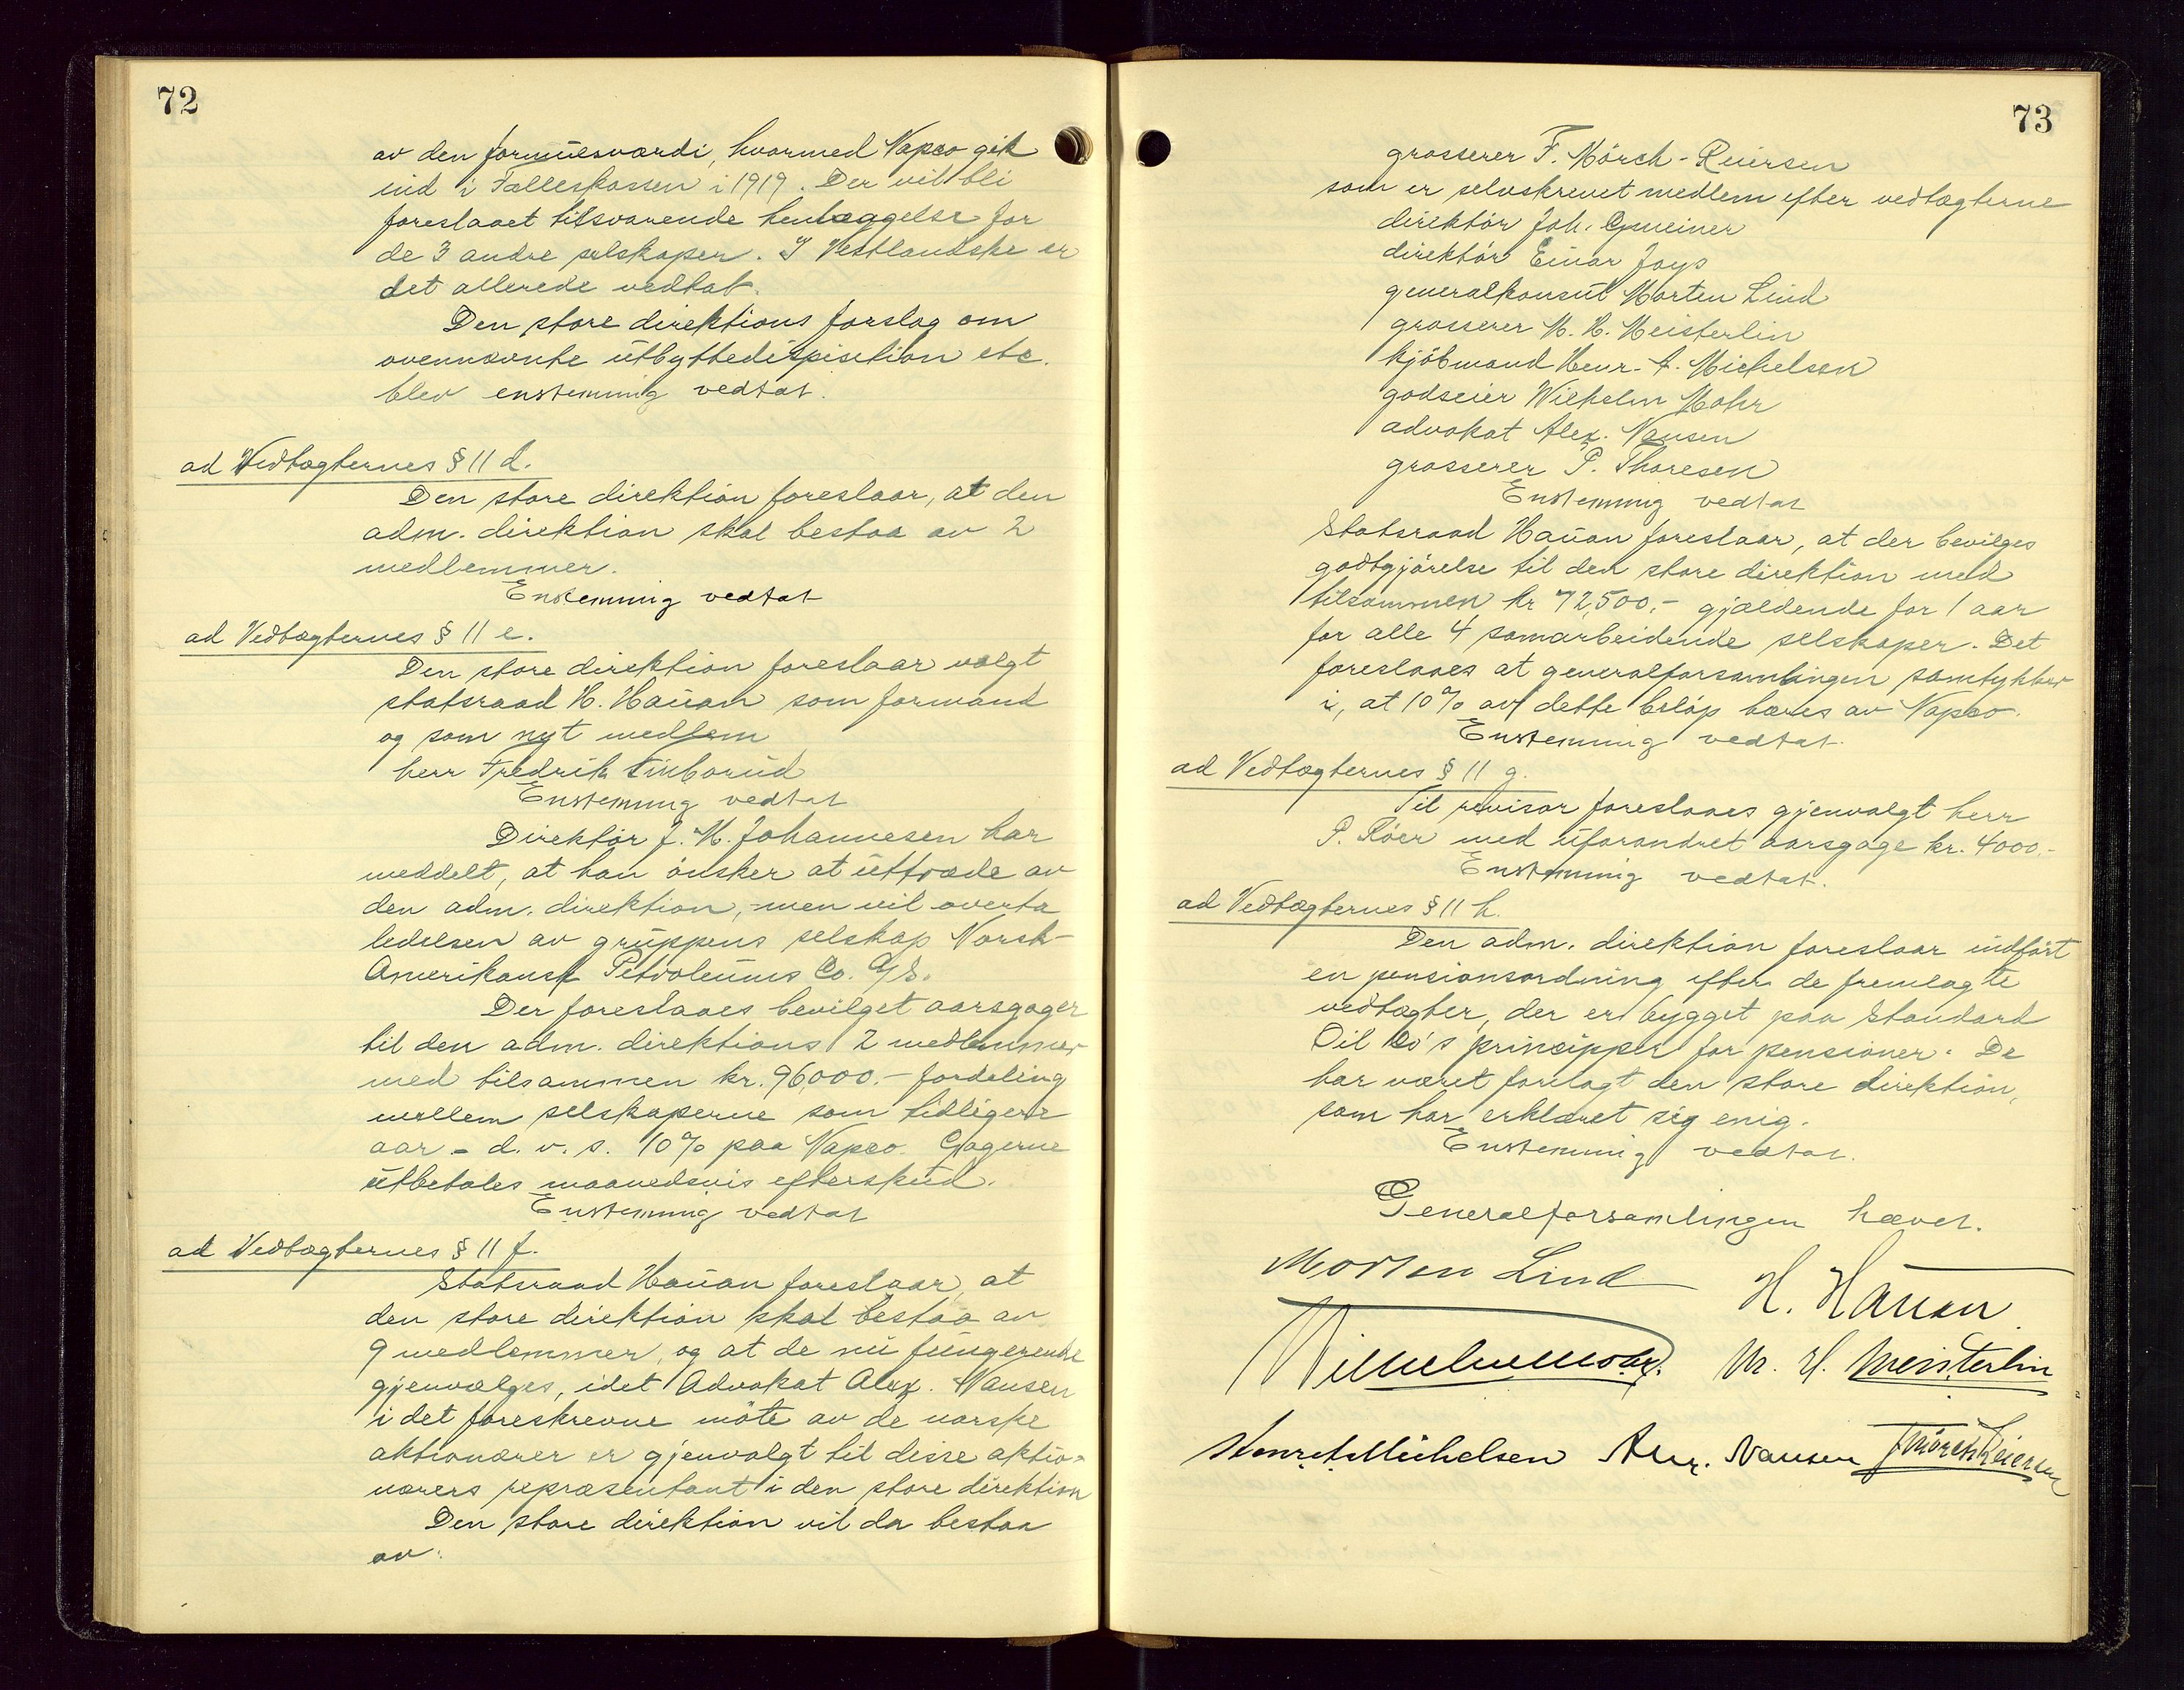 72
av den formuesværdi, hvormed Napco gik
ind i Fælleskassen i 1919. Der vil bli
foreslaaet tilsvarende henlæggelse for
de 3 andre selskaper. I Vestlandske er
det allerede vedtat.
Den store direktions forslag om
ovennævnte utbyttedispisition etc.
blev enstemmig vedtat.
ad Vedtægternes § 11 d.
Den store direktion foreslaar, at den
adm. direktion skal bestaa av 2
medlemmer.
Enstemmig vedtat
ad Vedtægternes § 11 e.
Den store direktion foreslaar valgt
statsraad H. Hauan som formand
og som nyt medlem
herr Fredrik
Enstemmig vedtat
Direktør J. M. Johannesen har
meddelt, at han ønsker at uttræde av
den adm. direktion, men vil overta
ledelsen av gruppens selskap Norsk-
Amerikansk Petroleums Co. A/S.
Der foreslaaes bevilget aarsgager
til den adm. direktions 2 medlemmer
med tilsammen kr. 96,000.- fordeling
mellem selskaperne som tidligere
aar - d. v. s. 10% paa Napco. Gagerne
utbetales maanedsvis efterskud.
Enstemmig vedtat
ad Vedtægternes § 11 f.
Statsraad Hauan foreslaar, at
den store direktion skal bestaa av
9 medlemmer, og at de nu fungerende
gjenvælges, idet Advokat Alex. Nansen
i det foreskrevne møte av de norske
aktionærer er gjenvalgt til disse aktio-
nærers repræsentant i den store direktion
Den store direktion vil da bestaa
av:
73
grosserer F. Mørch-Reiersen
som er selvskrevet medlem efter vedtægterne
direktør Joh. Gmeiner
direktør Einar Joys
generalkonsul Morten Lind
grosserer M. H. Meisterlin
kjøbmand Henr. A. Michelsen
godseier Wilhelm Mohr
advokat Alex. Nansen
grosserer P. Thoresen
Enstemmig vedtat
Statsraad Hauan foreslaar, at der bevilges
godtgjørelse til den store direktion med
tilsammen kr 72,500.- gjældende for 1 aar
for alle 4 samarbeidende selskaper. Det
foreslaaes at generalforsamlingen samtykker
i, at 10% av dette beløp bæres av Napco.
Enstemmig vedtat.
ad Vedtægternes § 11 g.
Til revisor foreslaaes gjenvalgt herr
P. Røer med uforandret aarsgage kr. 4000.-
Enstemmig vedtat.
ad Vedtægternes § 11 h.
Den adm. direktion foreslaar indført
en pensionsordning efter de fremlagte
vedtægter, der er bygget paa Standard
Oil Co's principper for pensioner. De
har været forelagt den store direktion,
som har erklæret sig enig.
Enstemmig vedtat.
Generalforsamlingen hævet.
Morten Lind H. Hauan
Wilhelm Mohr. M. H. Meisterlin
Henr. A. Michelsen Alex. Nansen F Mørch Reiersen